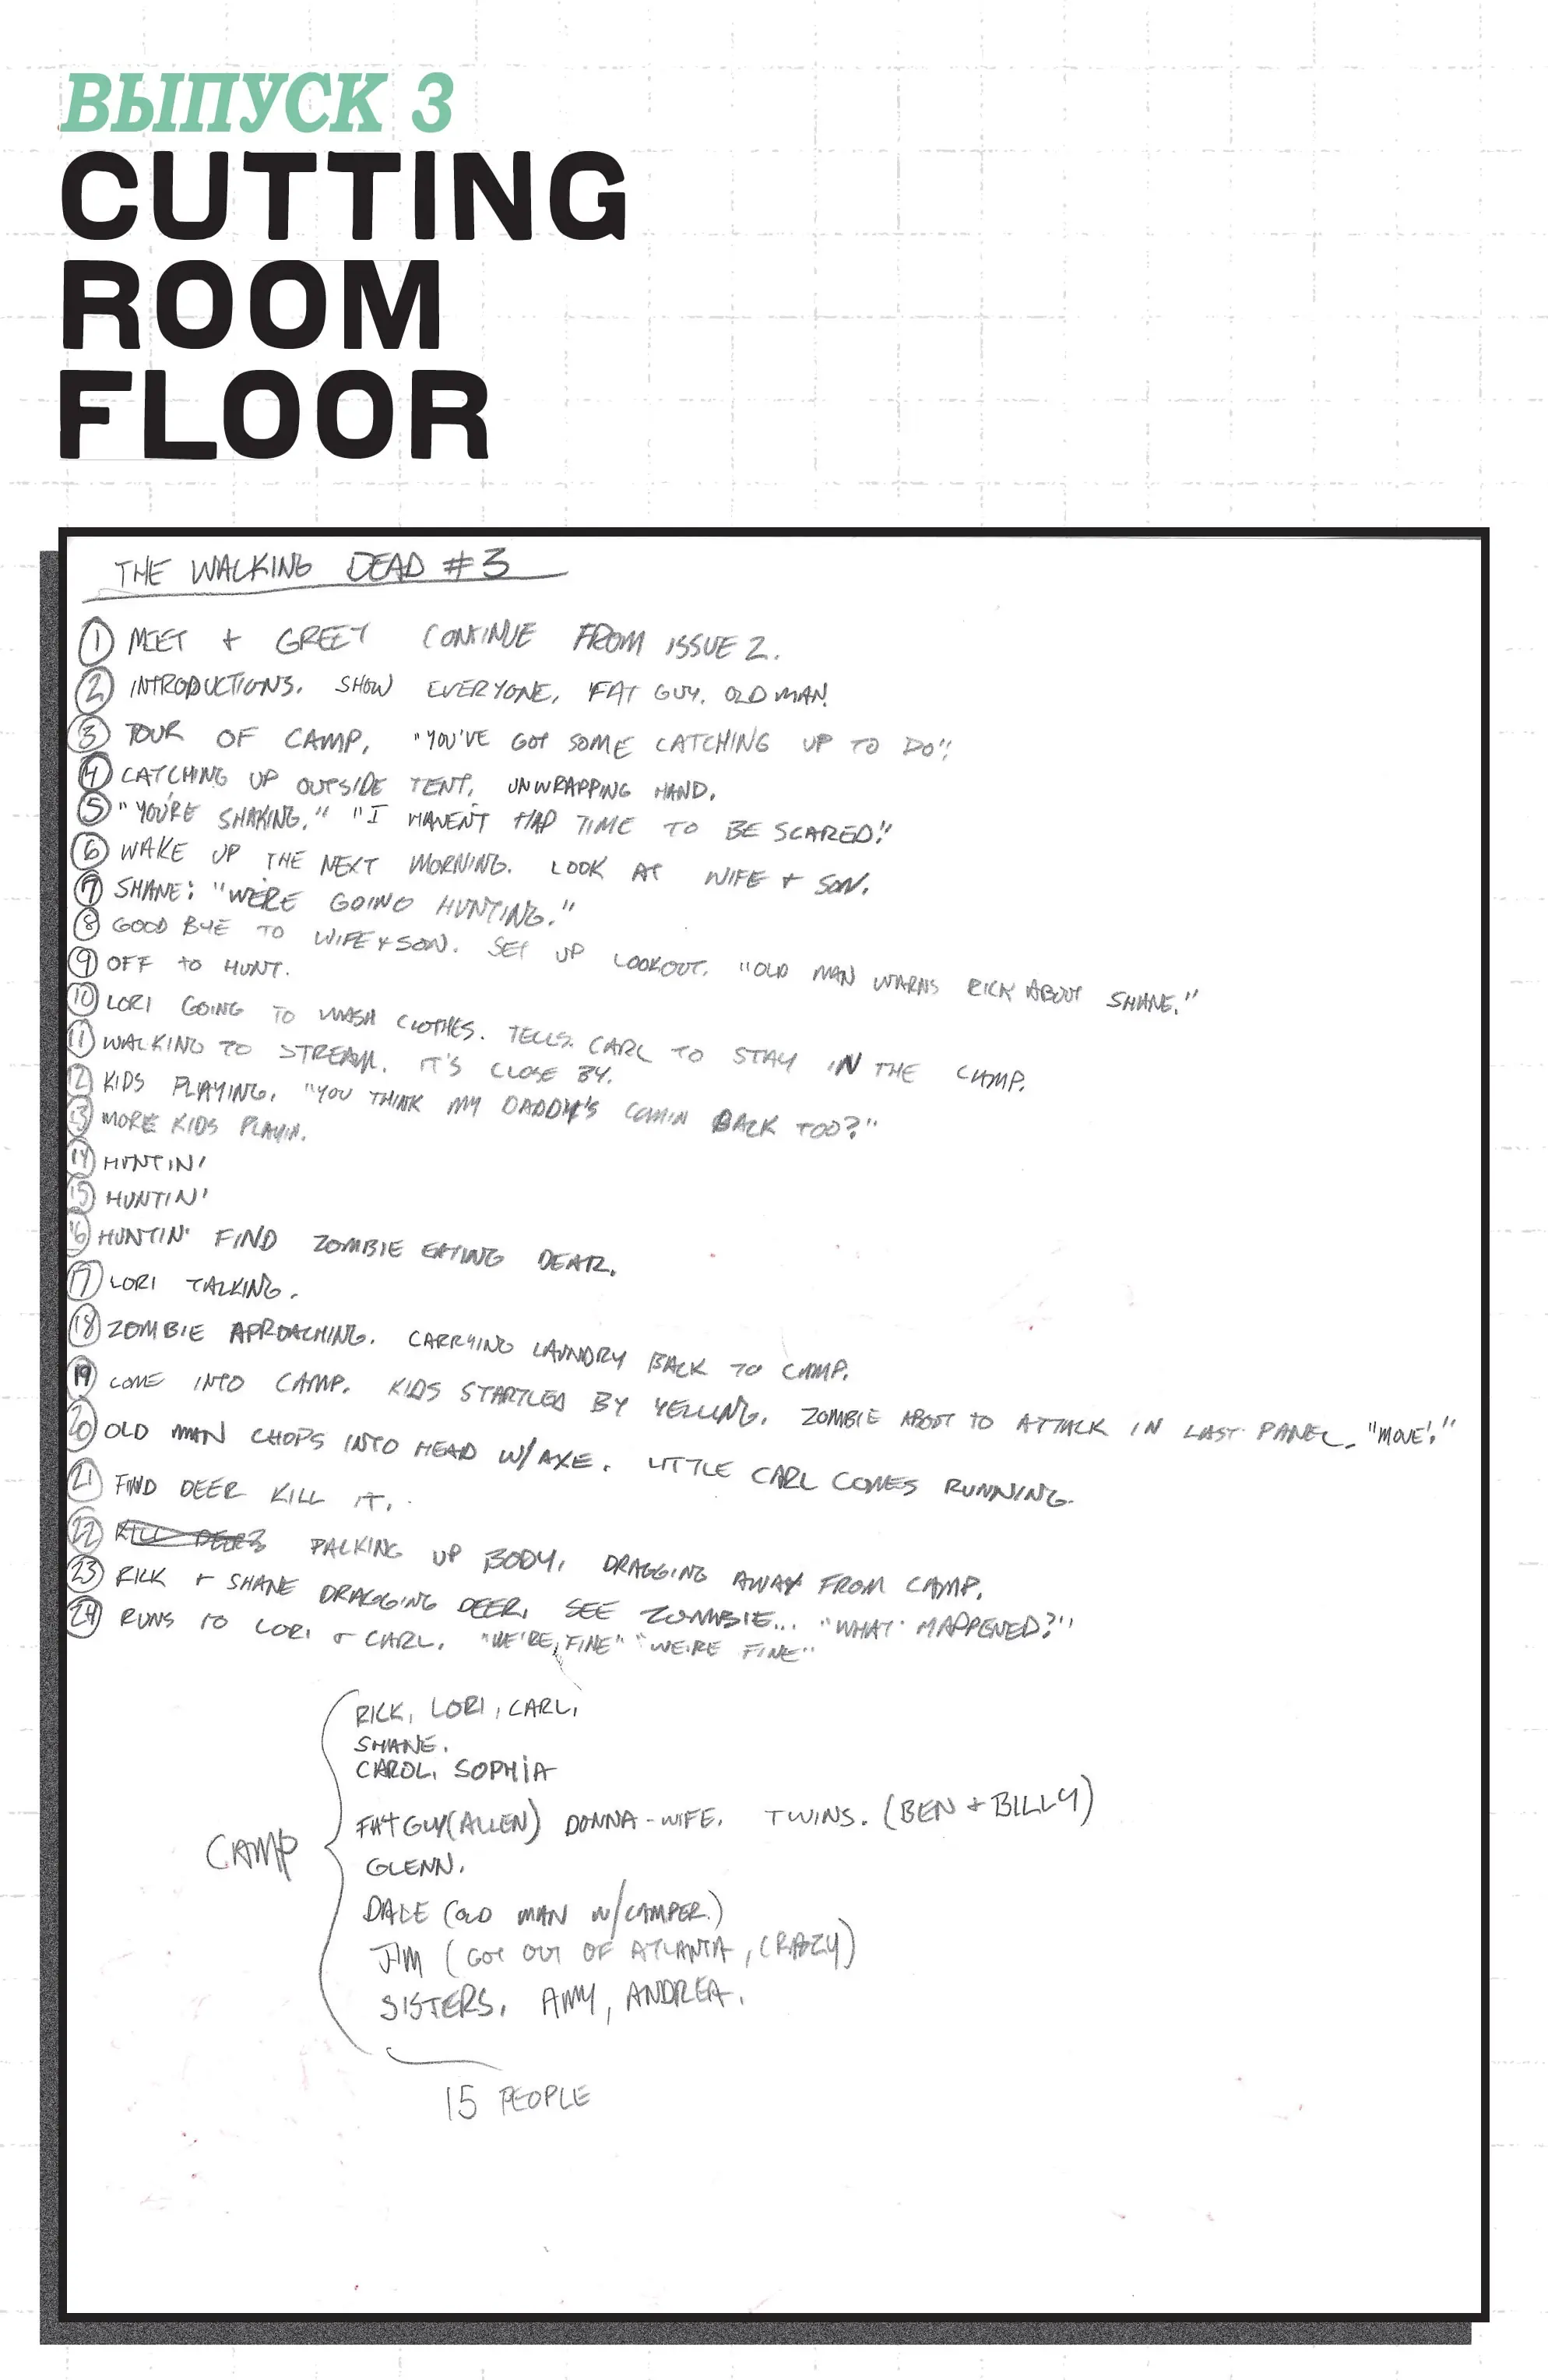 ВЫПУСК 3
CUTTING
ROOM
FLOOR
THE WALKING DEAD #3
1 MEET + GREET CONTINUE FROM ISSUE 2.
2 INTRODUCTIONS. SHOW EVERYONE, FAT GUY. OLD MAN.
3 TOUR OF CAMP, "YOU'VE GOT SOME CATCHING UP TO DO".
4 CATCHING UP OUTSIDE TENT, UNWRAPPING HAND.
5 "YOU'RE SHAKING." "I HAVEN'T HAD TIME TO BE SCARED."
6 WAKE UP THE NEXT MORNING. LOOK AT WIFE + SON.
7 SHANE: "WE'RE GOING HUNTING."
8 GOOD BYE TO WIFE + SON. SET UP LOOKOUT. "OLD MAN WARNS RICK ABOUT SHANE."
9 OFF TO HUNT.
10 LORI GOING TO WASH CLOTHES. TELLS CARL TO STAY IN THE CAMP.
11 WALKING TO STREAM. IT'S CLOSE BY.
12 KIDS PLAYING, "YOU THINK MY DADDY'S COMIN BACK TOO?"
13 MORE KIDS PLAYIN.
14 HUNTIN'
15 HUNTIN'
16 HUNTIN' FIND ZOMBIE EATING DEAR.
17 LORI TALKING.
18 ZOMBIE APROACHING. CARRYING LAUNDRY BACK TO CAMP.
19 COME INTO CAMP. KIDS STARTLED BY YELLING. ZOMBIE ABOUT TO ATTACK IN LAST PANEL. "MOVE!"
20 OLD MAN CHOPS INTO HEAD W/AXE. LITTLE CARL COMES RUNNING.
21 FIND DEER KILL IT.
22 KILL DEER PACKING UP BODY, DRAGGING AWAY FROM CAMP.
23 RICK + SHANE DRAGGING DEER, SEE ZOMBIE... "WHAT HAPPENED?"
24 RUNS TO LORI + CARL. "WE'RE FINE" "WE'RE FINE"
RICK, LORI, CARL,
SHANE.
CAROL, SOPHIA
FAT GUY (ALLEN) DONNA - WIFE. TWINS. (BEN + BILLY)
CAMP
GLENN.
DALE (OLD MAN W/CAMPER.)
JIM (GOT OUT OF ATLANTA, CRAZY)
SISTERS, AMY, ANDREA.
15 PEOPLE